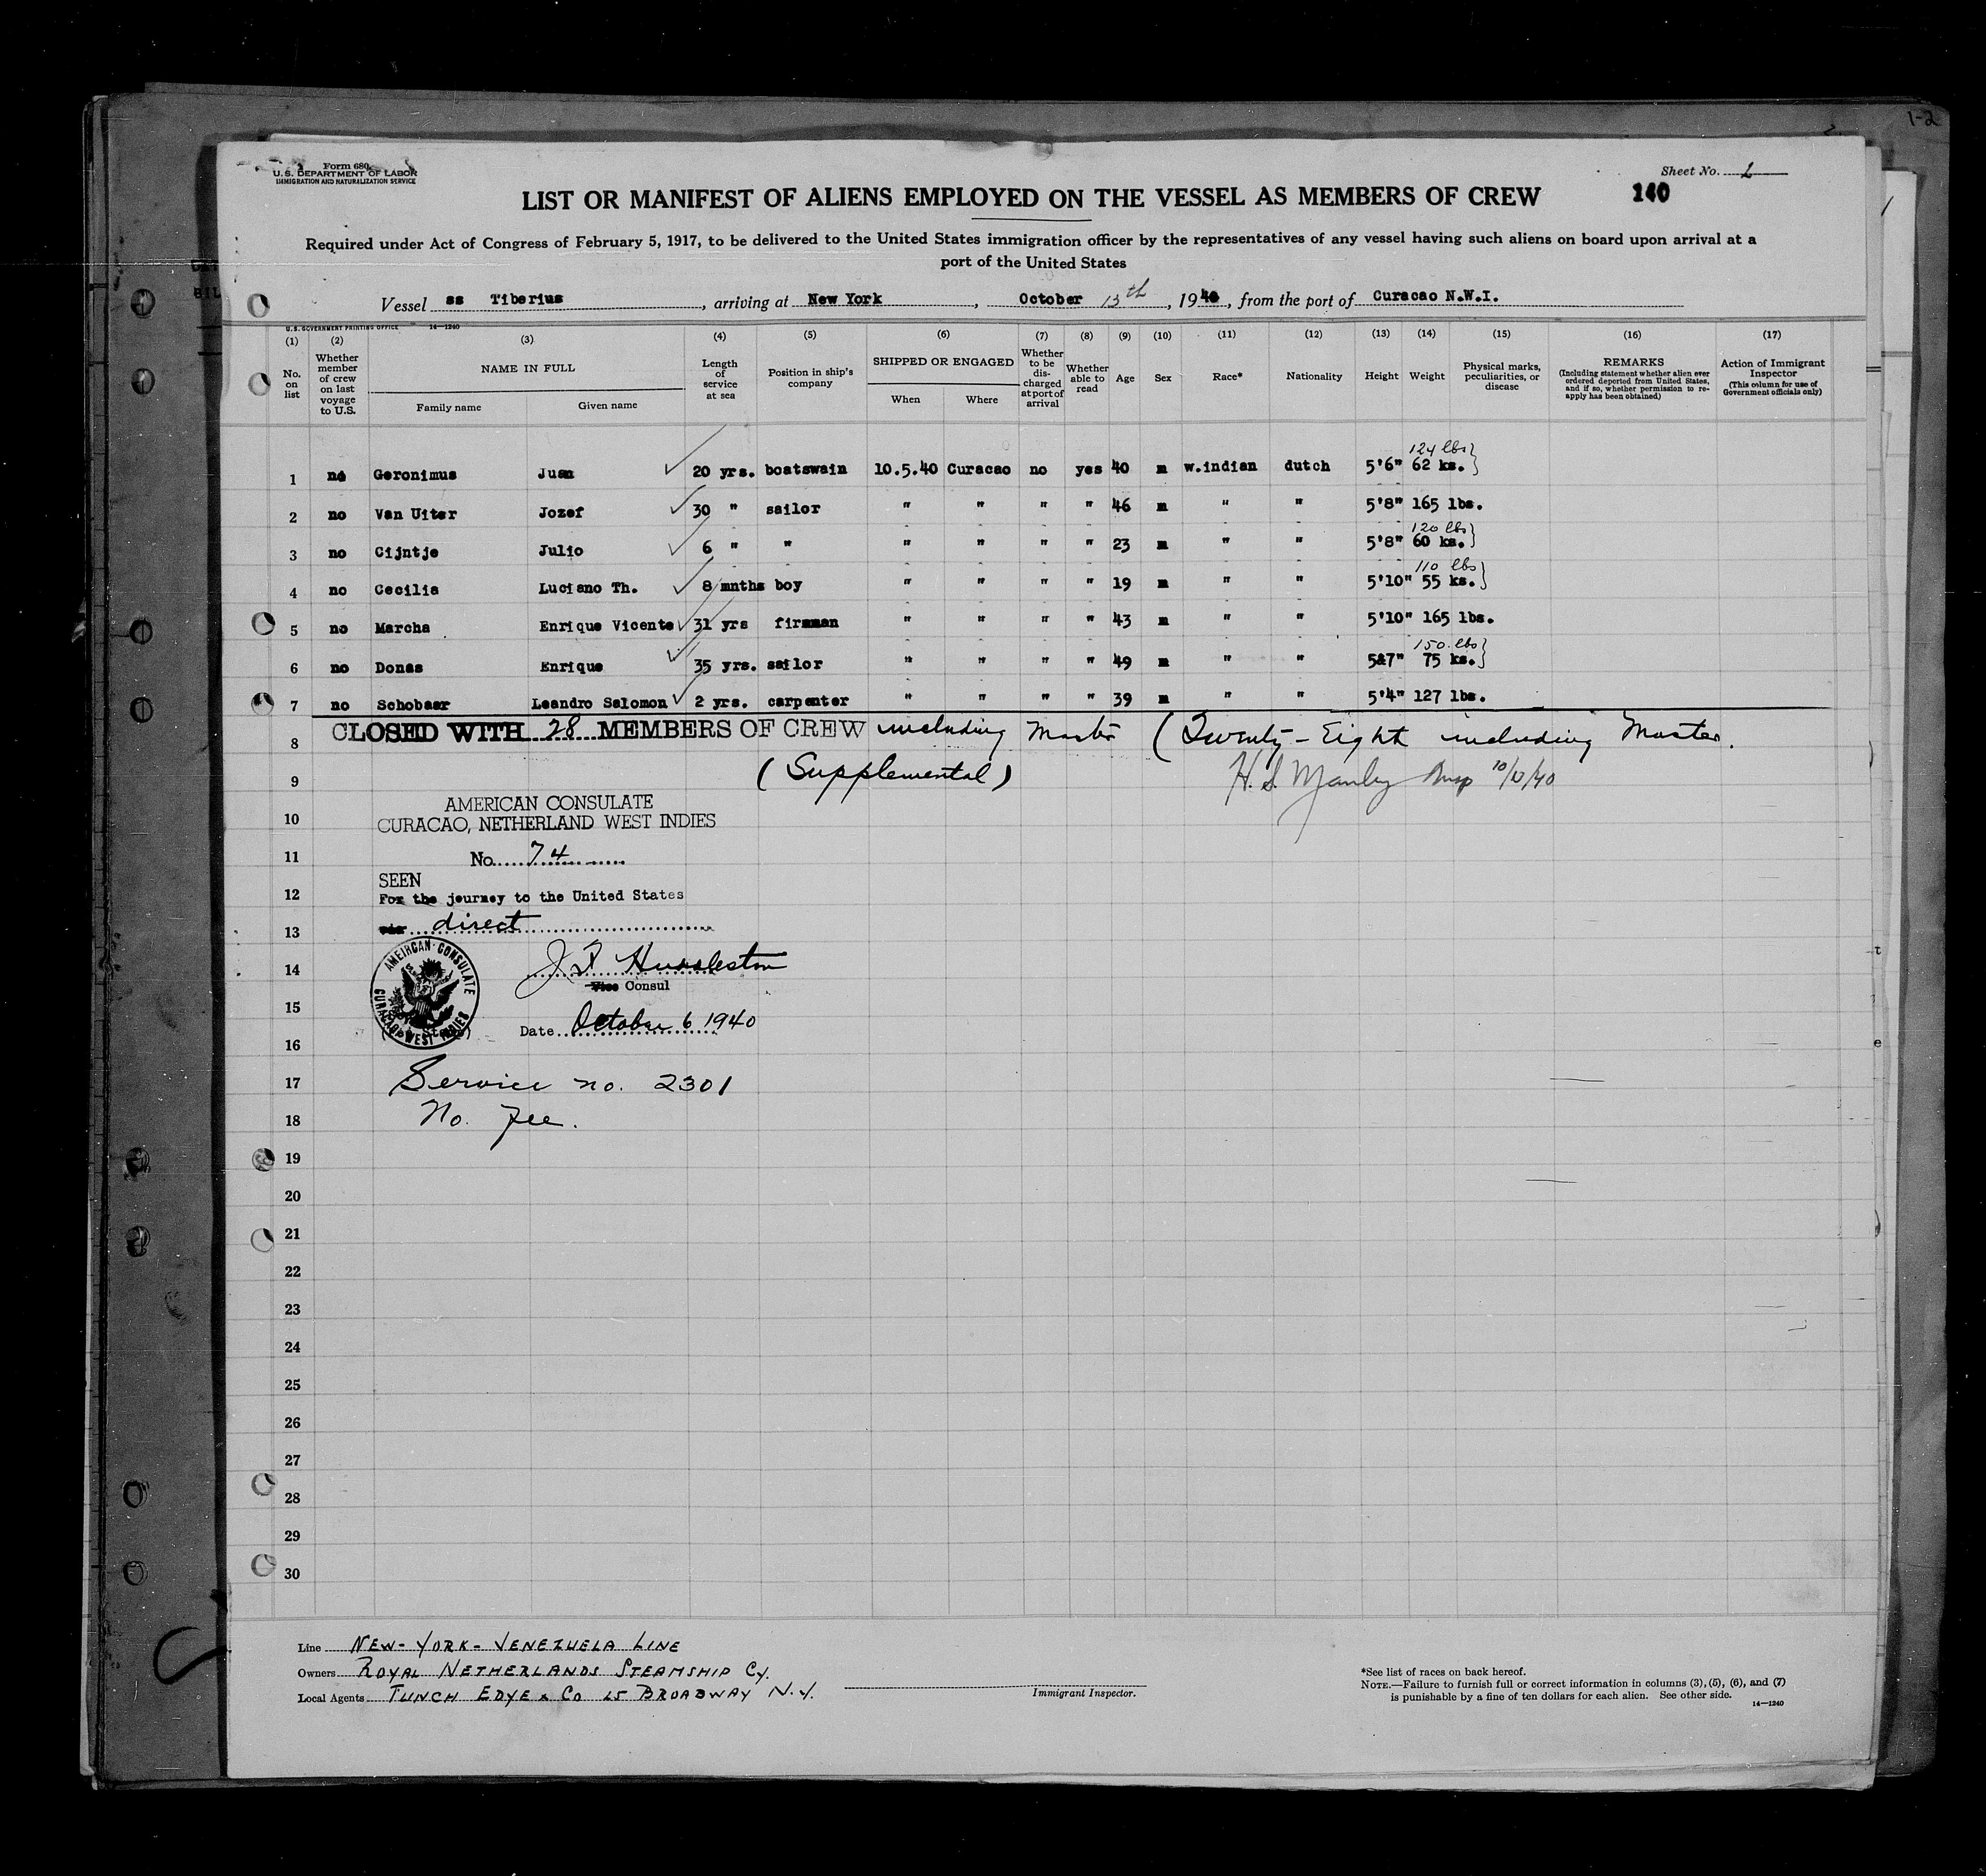 1-2
Form 680
U. S. DEPARTMENT OF LABOR
IMMIGRATION AND NATURALIZATION SERVICE
Sheet No.
LIST OR MANIFEST OF ALIENS EMPLOYED ON THE VESSEL AS MEMBERS OF CREW
140
Required under Act of Congress of February 5, 1917, to be delivered to the United States immigration officer by the representatives of any vessel having such aliens on board upon arrival at a
port of the United States
Vessel ss Tiberius, arriving at New York, October 13th, 1940, from the port of Curacao N.W.I.
U. S. GOVERNMENT PRINTING OFFICE 14—1240
(1) (2) (3) (4) (5) (6) (7) (8) (9) (10) (11) (12) (13) (14) (15) (16) (17)
No. on list
Whether member of crew on last voyage to U.S.
NAME IN FULL
Family name
Given name
Length of service at sea
Position in ship's company
SHIPPED OR ENGAGED
When
Where
Whether to be discharged at port of arrival
Whether able to read
Age
Sex
Race*
Nationality
Height
Weight
Physical marks, peculiarities, or disease
REMARKS
(Including statement whether alien ever ordered deported from United States, and if so, whether permission to reapply has been obtained)
Action of Immigrant Inspector
(This column for use of Government officials only)
124 lbs}
1 no Geronimus Juan 20 yrs. boatswain 10.5.40 Curacao no yes 40 m w.indian dutch 5'6" 62 ks.
2 no Van Uiter Jozef 30 " sailor " " " " 46 m " " 5'8" 165 lbs.
120 lbs}
3 no Cijntje Julio 6 " " " " " " 23 m " " 5'8" 60 ks.
110 lbs}
4 no Cecilia Luciano Th. 8 mnths boy " " " " 19 m " " 5'10" 55 ks.
5 no Marcha Enrique Vicente 31 yrs fireman " " " " 43 m " " 5'10" 165 lbs.
150 lbs}
6 no Donas Enrique 35 yrs. sailor " " " " 49 m " " 5&7" 75 ks.
7 no Schobaar Leandro Salomon 2 yrs. carpenter " " " " 39 m " " 5'4" 127 lbs.
8 CLOSED WITH 28 MEMBERS OF CREW including Master (Twenty-Eight including Master.
9 (Supplemental) H. S. Manley Insp 10/13/40
AMERICAN CONSULATE
10 CURACAO, NETHERLAND WEST INDIES
11 No. 74
SEEN
12 For the journey to the United States
13 via direct
AMERICAN CONSULATE CURACAO WEST INDIES
14 J F Huddleston
Vice Consul
15
Date October 6 1940
16
17 Service no. 2301
18 No fee.
19
20
21
22
23
24
25
26
27
28
29
30
Line NEW-YORK-VENEZUELA LINE
Owners ROYAL NETHERLANDS STEAMSHIP CY.
Local Agents FUNCH EDYE & CO 25 BROADWAY N.Y.
Immigrant Inspector.
*See list of races on back hereof.
NOTE.—Failure to furnish full or correct information in columns (3), (5), (6), and (7)
is punishable by a fine of ten dollars for each alien. See other side.
14—1240